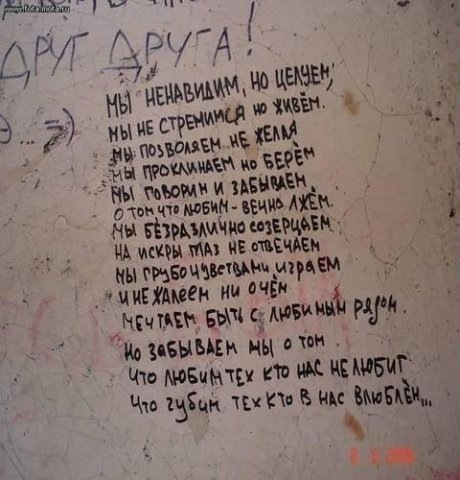 www.fota.mota.ru
ДРУГ ДРУГА!
МЫ НЕНАВИДИМ, НО ЦЕЛУЕМ,
МЫ НЕ СТРЕМИМСЯ НО ЖИВЁМ.
МЫ ПОЗВОЛЯЕМ НЕ ЖЕЛАЯ
МЫ ПРОКЛИНАЕМ НО БЕРЁМ
МЫ ГОВОРИМ И ЗАБЫВАЕМ
О ТОМ ЧТО ЛЮБИМ - ВЕЧНО ЛЖЁМ.
МЫ БЕЗРАЗЛИЧНО СОЗЕРЦАЕМ
НА ИСКРЫ ГЛАЗ НЕ ОТВЕЧАЕМ
МЫ ГРУБО ЧУВСТВАМИ ИГРАЕМ
И НЕ ЖАЛЕЕМ НИ О ЧЁМ
МЕЧТАЕМ БЫТЬ С ЛЮБИМЫМ РЯДОМ.
НО ЗАБЫВАЕМ МЫ О ТОМ
ЧТО ЛЮБИМ ТЕХ КТО НАС НЕ ЛЮБИТ
ЧТО ГУБИМ ТЕХ КТО В НАС ВЛЮБЛЁН...